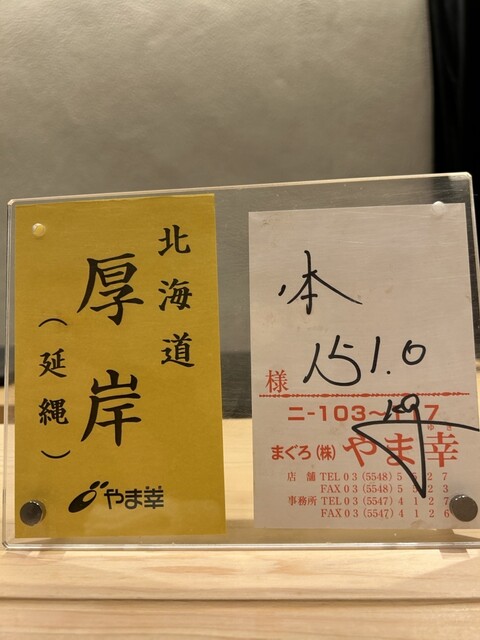 北海道
厚岸
(延縄)
やま幸
本
151.0
様
ニ-103~
まぐろ(株)やま幸
店舗 TEL 03 (5548) 5
FAX 03 (5548) 5
事務所 TEL 03 (5547) 4127
FAX 03 (5547) 4126